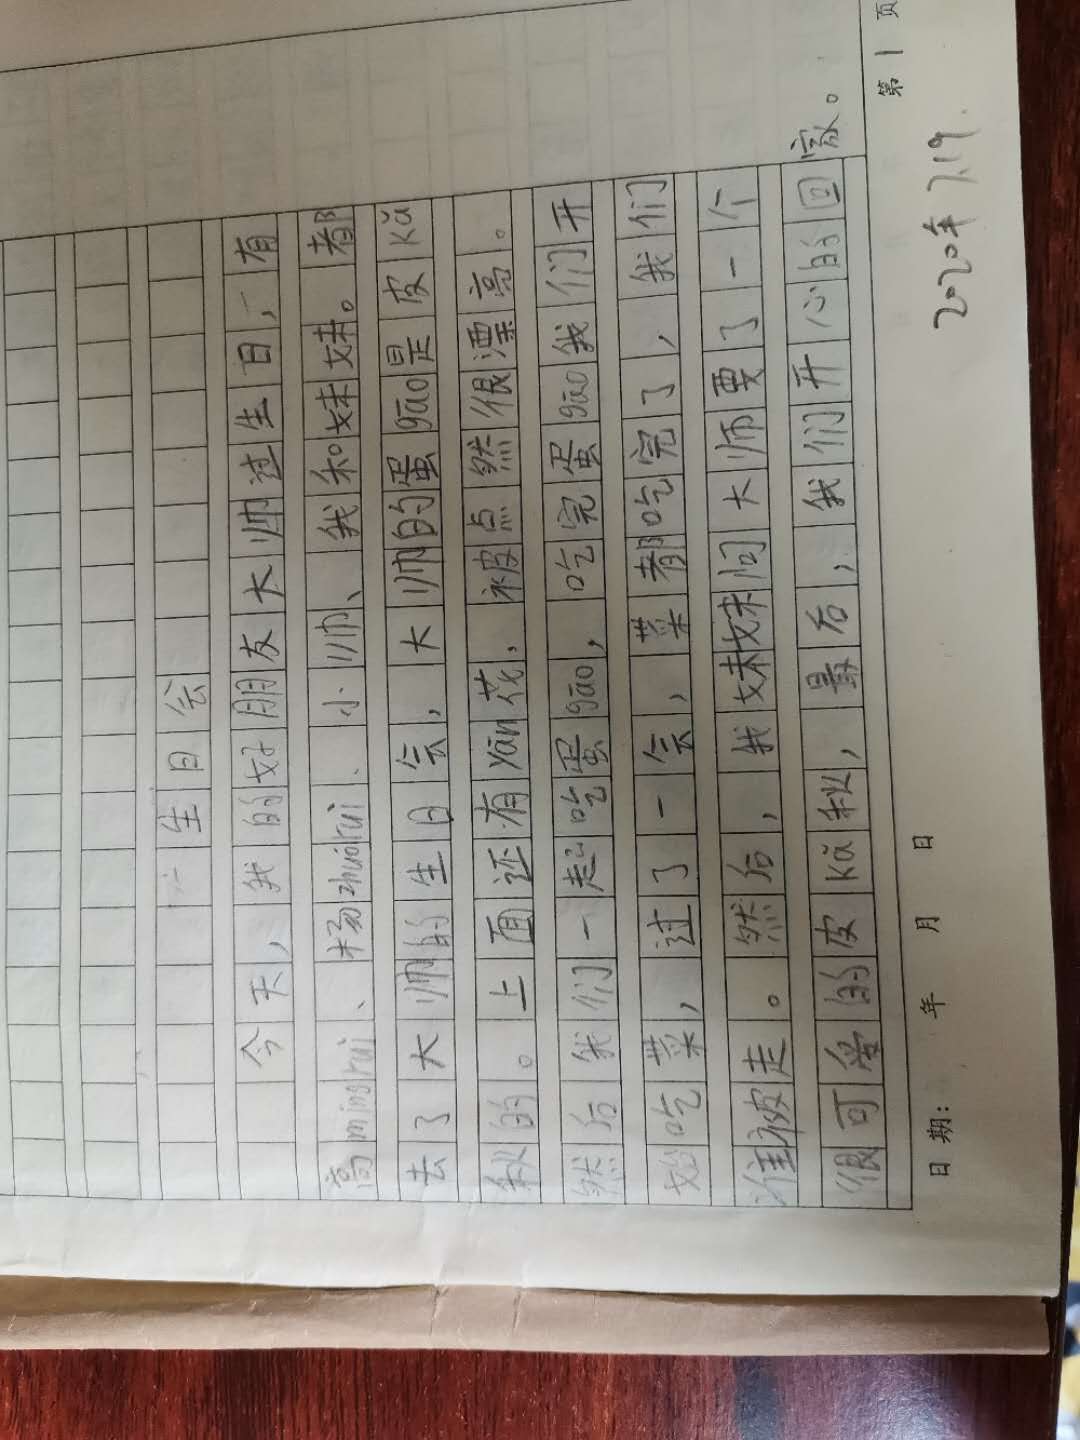 生日会
今天，我的好朋友大帅过生日，有
高míngruì、杨zhuóruì、小帅、我和妹妹。都
去了大帅的生日会，大帅的蛋gāo是皮kǎ
秋的。上面还有yān花，被点然很漂高。
然后我们一起吃蛋gāo，吃完蛋gāo我们开
始吃菜，过了一会，菜都吃完了，我们
准被走。然后，我妹妹问大师要了一个
很可爱的皮kǎ秋，最后，我们开心的回
家。
日期： 年 月 日
第1页
2020年7.19.